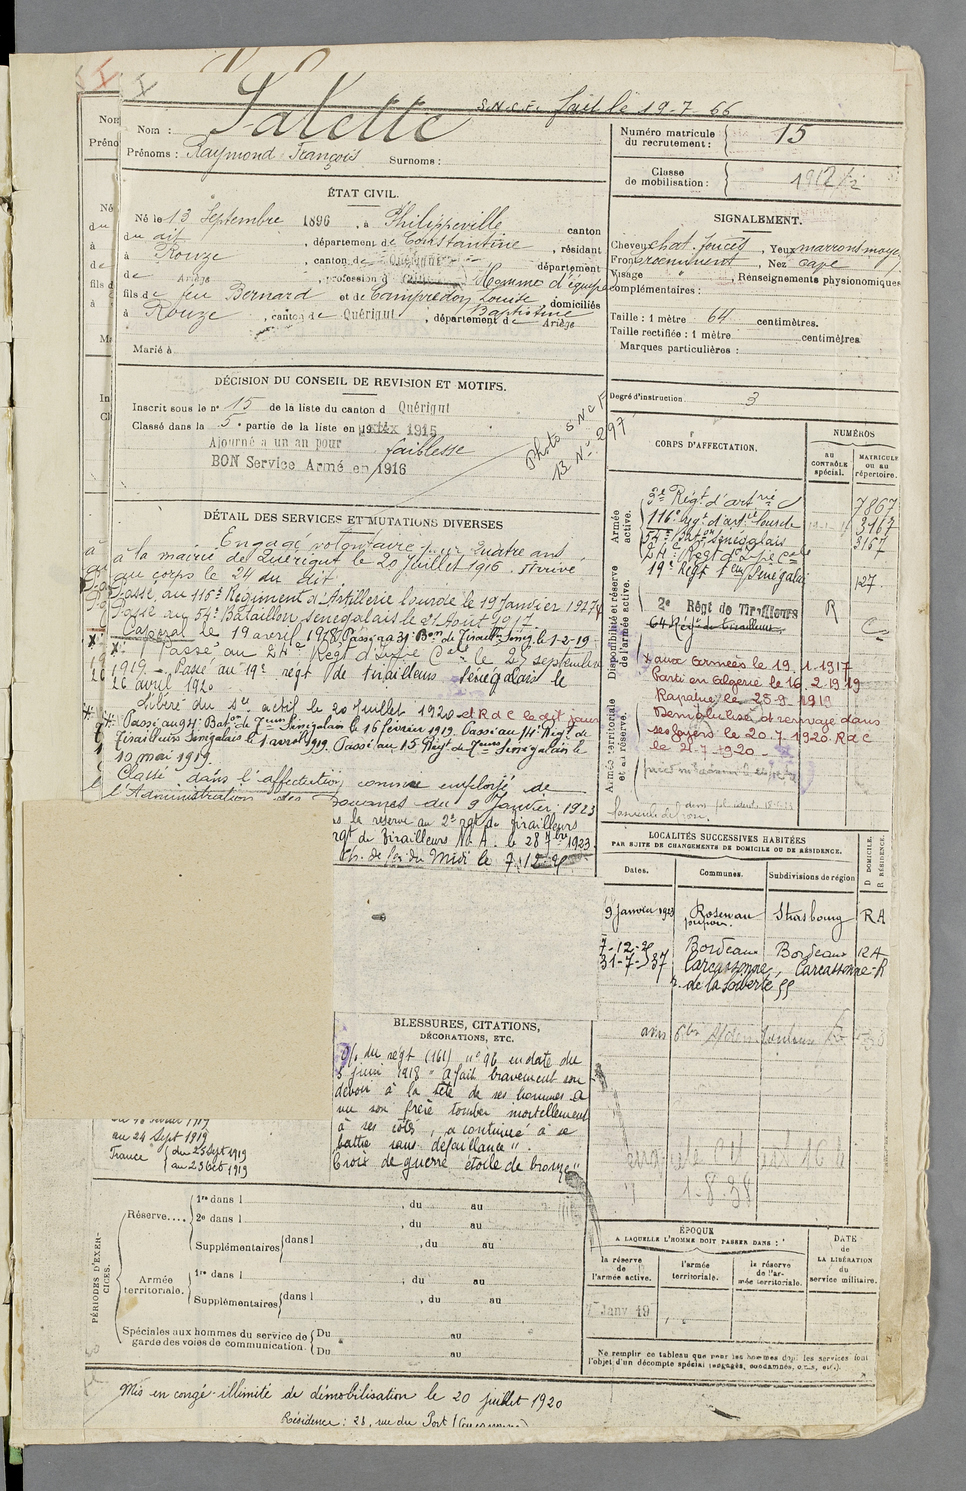 S.N.C.F. fait le 19-7-66
Nom : Salette
Prénoms : Raymond François Surnoms :
Numéro matricule du recrutement : 15
Classe de mobilisation : 1912/2
ÉTAT CIVIL.
Né le 13 Septembre 1896, à Philippeville canton
du dit, département de Constantine, résidant
à Rouze, canton de Quérigut département
de Ariège, profession d Homme d'équipe
fils de feu Bernard et de Compredon Louise Baptistine, domiciliés
à Rouze, canton de Quérigut, département de Ariège
Marié à
SIGNALEMENT.
Cheveux chat. foncés, Yeux marrons moyen
Front proéminent, Nez cave
Visage " , Renseignements physionomiques
complémentaires :
Taille : 1 mètre 64 centimètres.
Taille rectifiée : 1 mètre centimètres
Marques particulières :
Degré d'instruction 3
DÉCISION DU CONSEIL DE REVISION ET MOTIFS.
Inscrit sous le n° 15 de la liste du canton d Quérigut
Classé dans la 5e partie de la liste en 1915
Ajourné a un an pour faiblesse
BON Service Armé en 1916
Photo S N C F
B N° 297
CORPS D'AFFECTATION.
NUMÉROS
au CONTRÔLE spécial.
MATRICULE ou au répertoire.
Armée active.
2e Régt d'artrie 7867
116e régt d'artie lourde 3167
54e Baton Sénégalais 3167
24e Régt d'Infie Cale
19e Régt Teurs Sénégalais 127
Disponibilité et réserve de l'armée active.
2e Régt de Tirailleurs R
64 Régt de tirailleurs
x aux armées le 19.1.1917
Parti en Algérie le 16.2.1919
Rapatrié le 25-9-1919
Démobilisé et renvoyé dans
ses foyers le 20.7.1920 R d C
le 21.7.1920
Armée territoriale et sa réserve.
DÉTAIL DES SERVICES ET MUTATIONS DIVERSES
Engagé volontaire pour quatre ans
à la mairie de Quérigut le 20 Juillet 1916. Arrivé
au corps le 24 du dit.
Passé au 116e Régiment d'Artillerie lourde le 19 Janvier 1917
Passé au 54e Bataillon Sénégalais le 21 Août 1917.
Caporal le 19 avril 1918 Passé au 31 Bon de Tiraillrs Sénég. le 1-2-19
x Passé au 24e Régt d'Infie Cale le 25 septembre
1919. Passé au 19e régt de tirailleurs Sénégalais le
26 avril 1920
Libéré du Sce actif le 20 Juillet 1920 et R d C le dit jour
Passé au 94e Baton de Teurs Sénégalais le 16 février 1919. Passé au 14e Régt de
Tirailleurs Sénégalais le 1 avril 1919. Passé au 15 Régt de Teurs Sénégalais le
10 mai 1919.
Classé dans l'affectation comme employé de
l'Administration des Douanes du 9 Janvier 1923
la réserve au 2e rgt de Tirailleurs
rgt de Tirailleurs N. A. le 28 7bre 1923
Ch. de fer du Midi le 7.12.
LOCALITÉS SUCCESSIVES HABITÉES
PAR SUITE DE CHANGEMENTS DE DOMICILE OU DE RÉSIDENCE.
Dates. Communes. Subdivisions de région D DOMICILE. R RÉSIDENCE.
9 Janvier 1923 Rosenau Strasbourg R A
7-12-26 Bordeaux Bordeaux R A
31-7-37 Carcassonne, Carcassonne R
r. de la Liberté 55
avis
1-8-38
BLESSURES, CITATIONS,
DÉCORATIONS, ETC.
O/. du régt (161) n° 96 en date du
3 juin 1918 " A fait bravement son
devoir à la tête de ses hommes. A
vu son frère tomber mortellement
à ses côtés, a continué à se
battre sans défaillance".
Croix de guerre étoile de bronze"
au 24 Sept 1919
France { du 25 Sept 1919
au 23 Oct 1919
PÉRIODES D'EXERCICES.
Réserve....
1re dans l , du au
2e dans l , du au
Supplémentaires dans l , du au
Armée territoriale.
1re dans l , du au
Supplémentaires dans l , du au
Spéciales aux hommes du service de garde des voies de communication.
Du au
Du au
ÉPOQUE
A LAQUELLE L'HOMME DOIT PASSER DANS :
la réserve de l'armée active.
l'armée territoriale.
la réserve de l'armée territoriale.
DATE de LA LIBÉRATION du service militaire.
Janv 19
Ne remplir ce tableau que pour les hommes dont les services font
l'objet d'un décompte spécial (engagés, condamnés, omis, etc.).
Mis en congé illimité de démobilisation le 20 juillet 1920
Résidence : 28, rue du Port